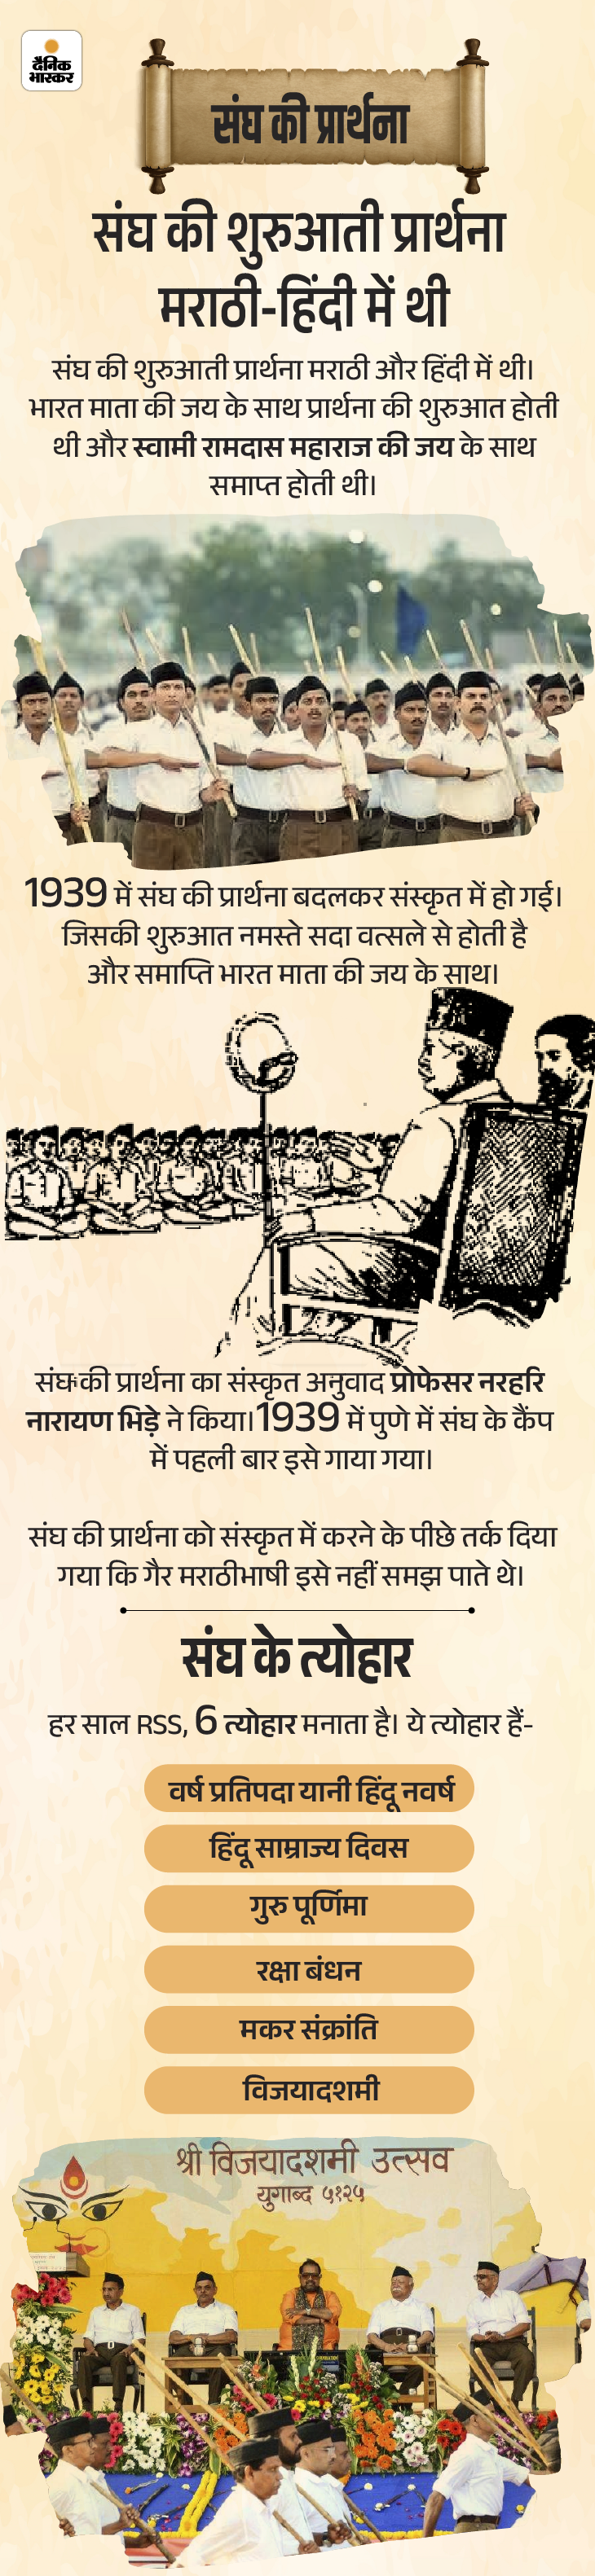 दैनिक
भास्कर
संघ की प्रार्थना
संघ की शुरुआती प्रार्थना
मराठी-हिंदी में थी
संघ की शुरुआती प्रार्थना मराठी और हिंदी में थी।
भारत माता की जय के साथ प्रार्थना की शुरुआत होती
थी और स्वामी रामदास महाराज की जय के साथ
समाप्त होती थी।
1939 में संघ की प्रार्थना बदलकर संस्कृत में हो गई।
जिसकी शुरुआत नमस्ते सदा वत्सले से होती है
और समाप्ति भारत माता की जय के साथ।
संघ की प्रार्थना का संस्कृत अनुवाद प्रोफेसर नरहरि
नारायण भिड़े ने किया। 1939 में पुणे में संघ के कैंप
में पहली बार इसे गाया गया।
संघ की प्रार्थना को संस्कृत में करने के पीछे तर्क दिया
गया कि गैर मराठीभाषी इसे नहीं समझ पाते थे।
संघ के त्योहार
हर साल RSS, 6 त्योहार मनाता है। ये त्योहार हैं-
वर्ष प्रतिपदा यानी हिंदू नवर्ष
हिंदू साम्राज्य दिवस
गुरु पूर्णिमा
रक्षा बंधन
मकर संक्रांति
विजयादशमी
श्री विजयादशमी उत्सव
युगाब्द ५१२५